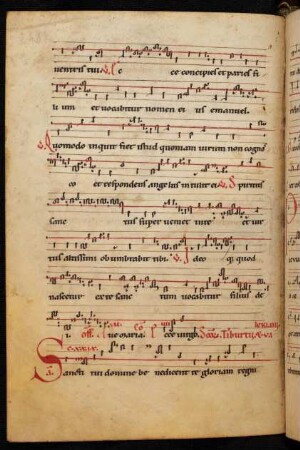 ventris tui V. Ec ce concipies et paries fi
lium et vocabitur nomen ei us emanuel.
V. Quomodo inquit fiet istud quoniam virum non cogno
sco et respondens angelus inquit ei V. Spiritus
sanc tus superveniet in te et vir
tus altissimi obumbrabit tibi. V. Ideo q quod
nascetur ex te sanc tum vocabitur filius de
i. Off. Ave maria. Co. Ecce virgo. Scorum Tiburtii & va
leriani
Sancti tui domine be nedicent te gloriam regni